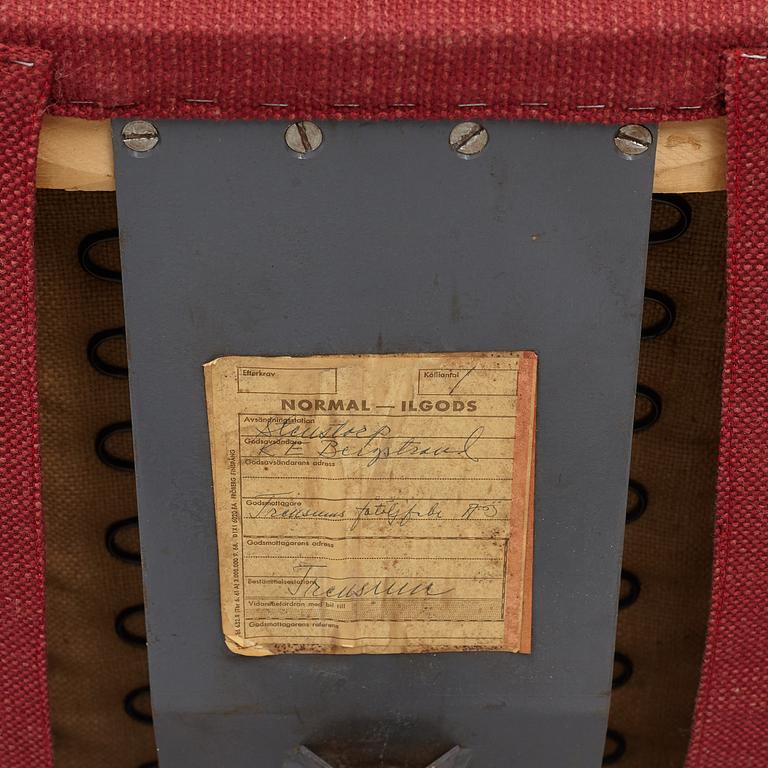 Efterkrav
Kolliantal 1
NORMAL — ILGODS
Avsändningsstation
Stenstorp
Godsavsändare
K E Bergstrand
Godsavsändarens adress
Godsmottagare
Tranums
Godsmottagarens adress
Bestämmelsestation
Tranum
Vidarebefordran med bil till
Godsmottagarens referens